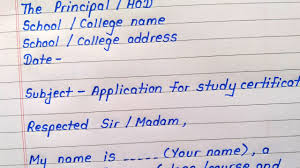 The Principal / HOD
School / College name
School / College address
Date -
Subject - Application for study certificat
Respected Sir / Madam,
My name is ----- (Your name), a